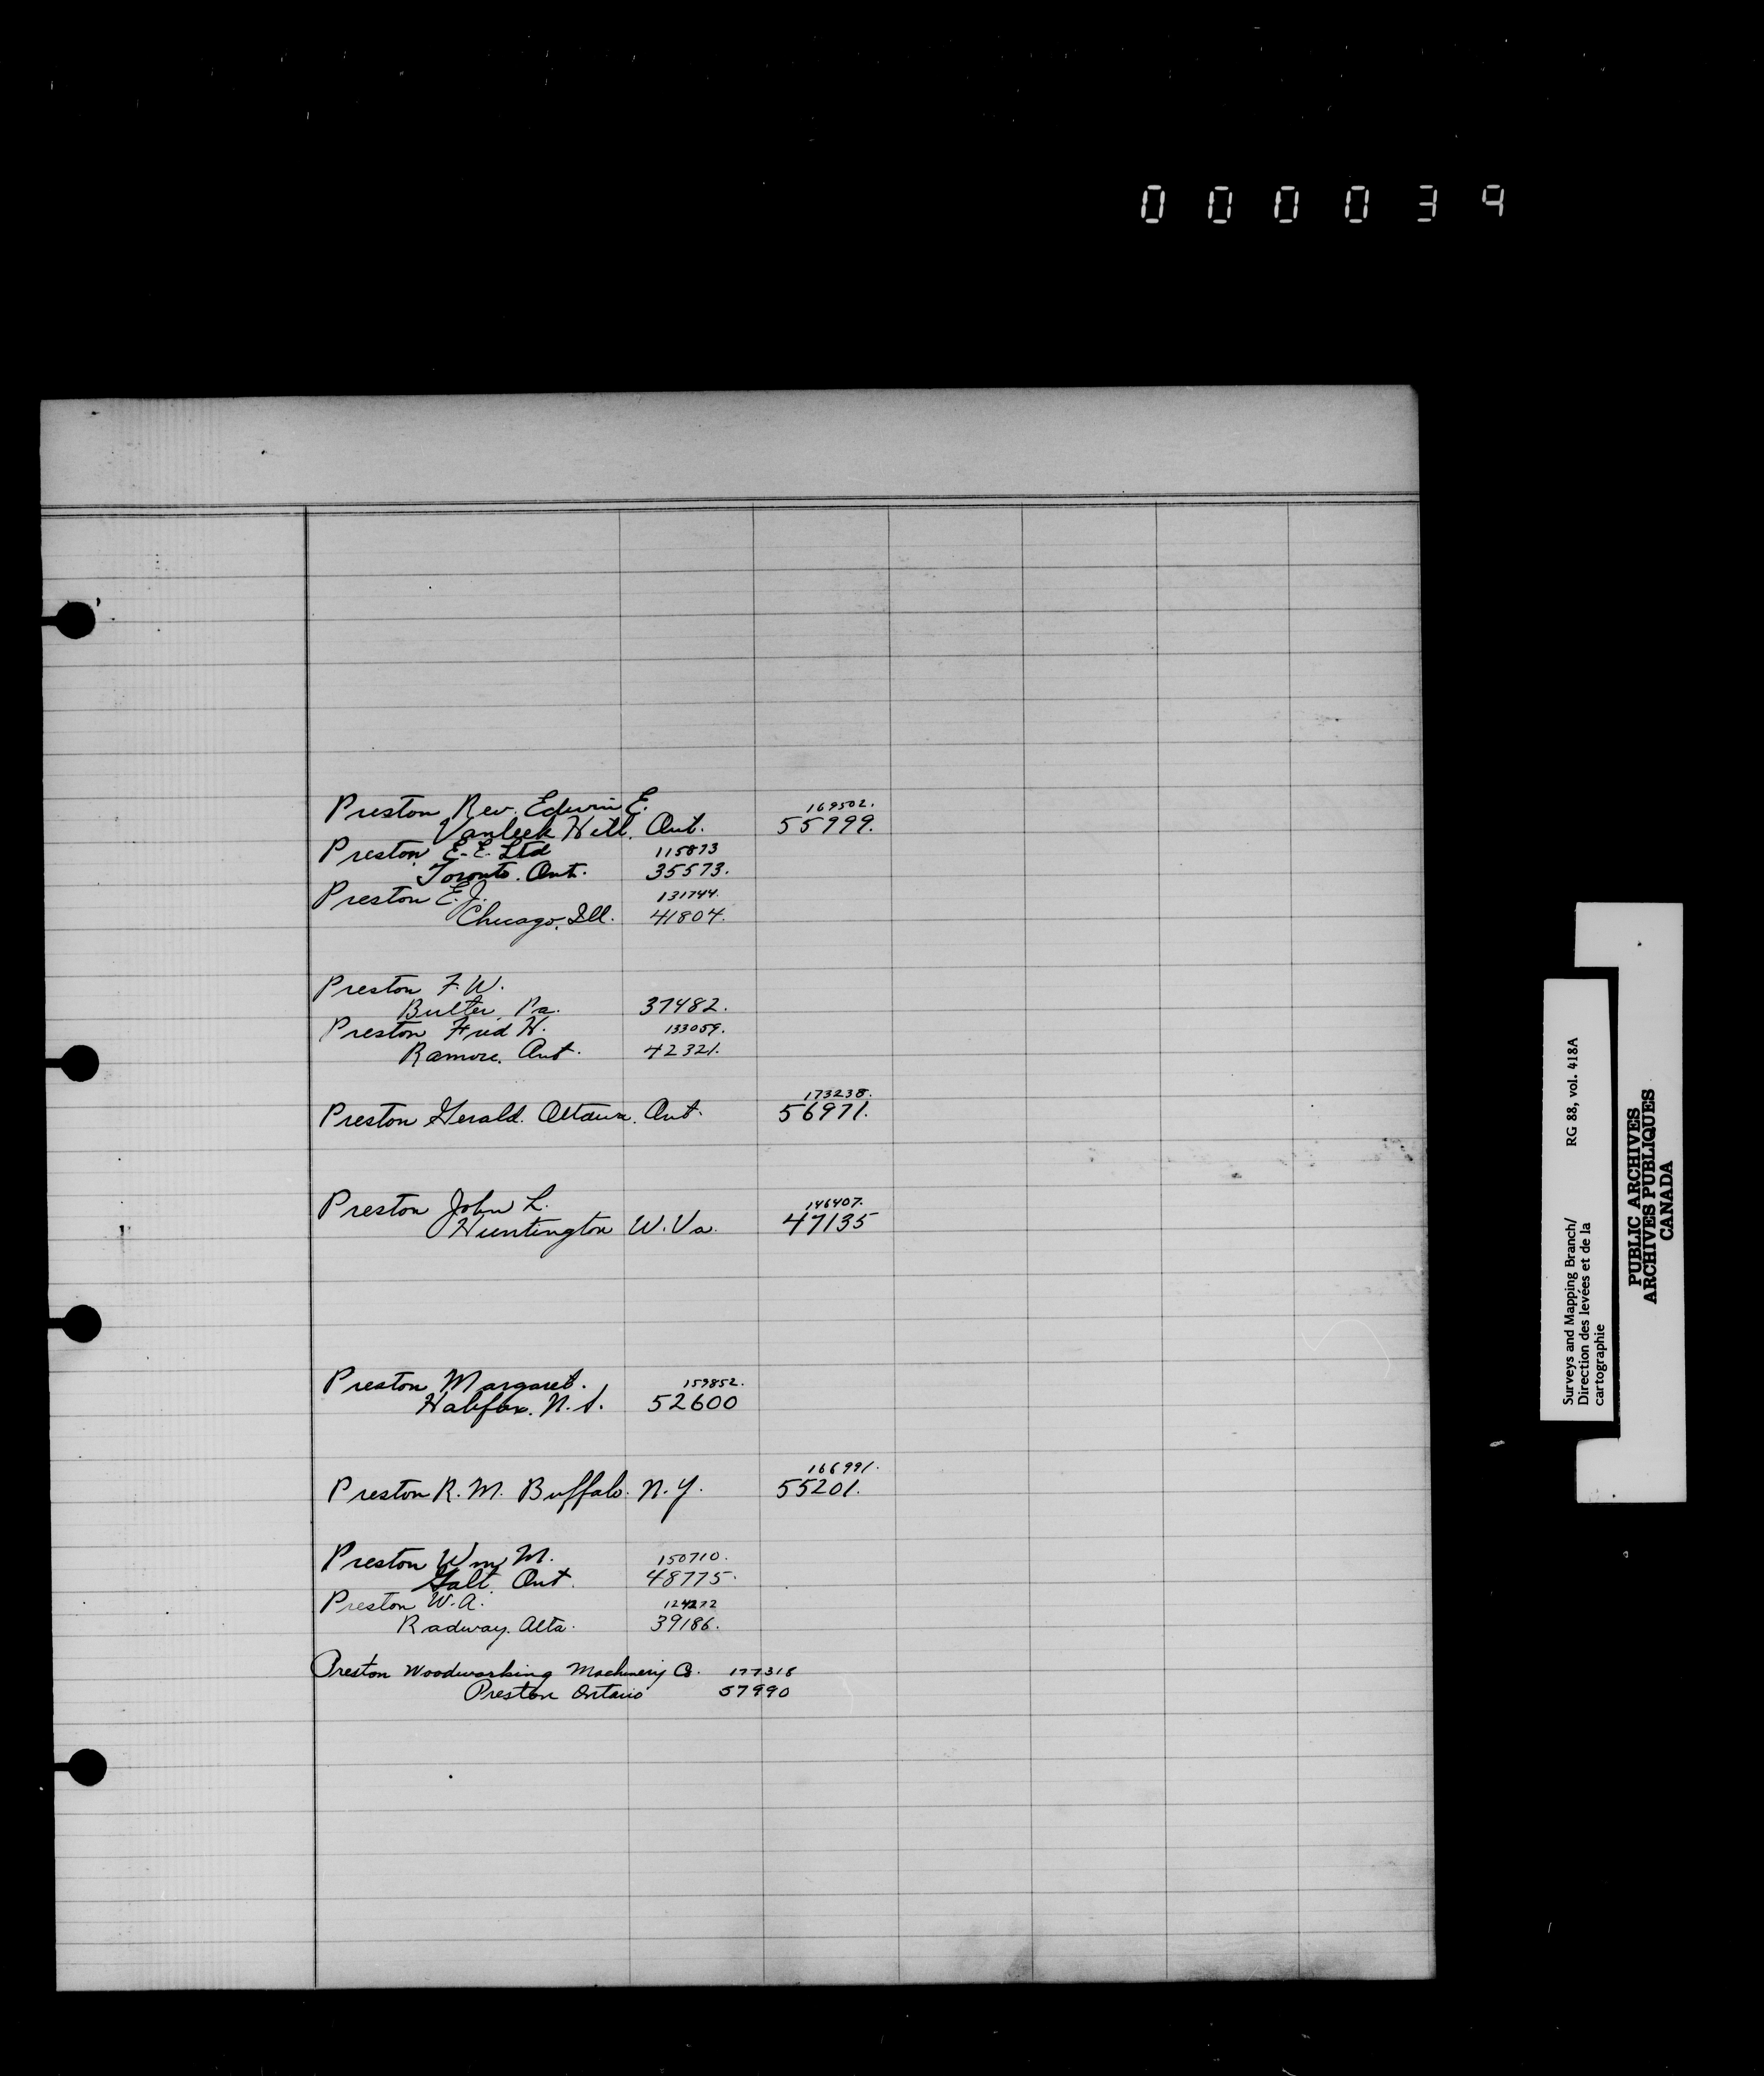 000039
Preston Rev. Edwin E. 169502.
Vanleek Hill. Ont. 55999.
Preston E.E. Ltd 115873
Toronto. Ont. 35573.
Preston E.J. 131744.
Chicago. Ill. 41804.
Preston F.W.
Butler, Pa. 37482.
Preston Fred H. 133059.
Ramore. Ont. 42321.
173238.
Preston Gerald. Ottawa. Ont. 56971.
Preston John L. 146407.
Huntington W. Va. 47135
Preston Margaret. 159852.
Halifax. N.S. 52600
166991.
Preston R. M. Buffalo. N.Y. 55201.
Preston Wm M. 150710.
Galt. Ont. 48775.
Preston W.A. 124272
Radway. Alta. 39186.
Preston Woodworking Machinery Co. 177318
Preston Ontario 57990
Surveys and Mapping Branch/ RG 88, vol. 418A
Direction des levées et de la
cartographie
PUBLIC ARCHIVES
ARCHIVES PUBLIQUES
CANADA